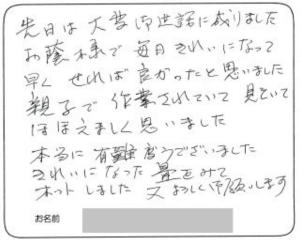 先日は大変御世話に成りました
お蔭様で毎日きれいになって
早くせれば良かったと思いました
親子で作業されていて見ていて
ほほえましく思いました
本当に有難う御ざいました
きれいになった畳をみて
ホットしました 又よろしく御願いします
お名前